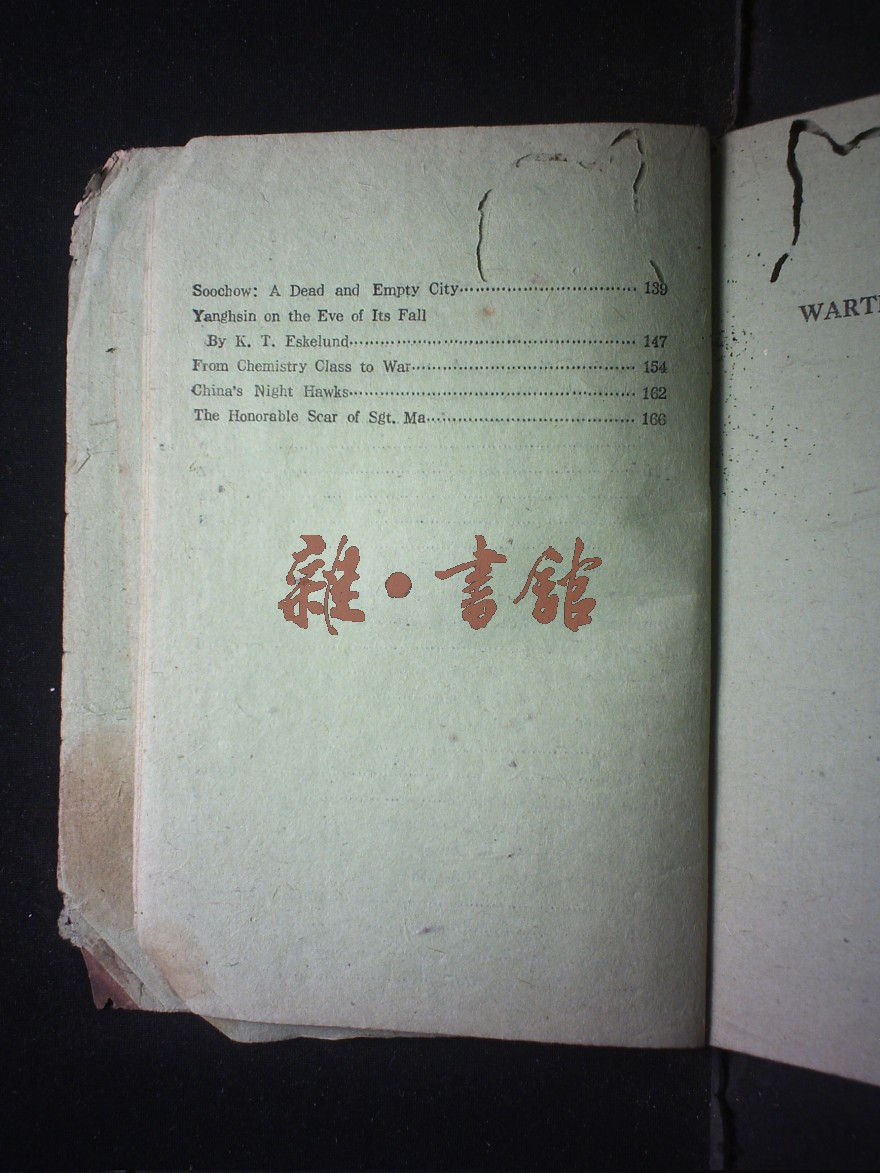 Soochow: A Dead and Empty City 139
Yanghsin on the Eve of Its Fall
By K. T. Eskelund 147
From Chemistry Class to War 154
China's Night Hawks 162
The Honorable Scar of Sgt. Ma 166
雜·書館
WART